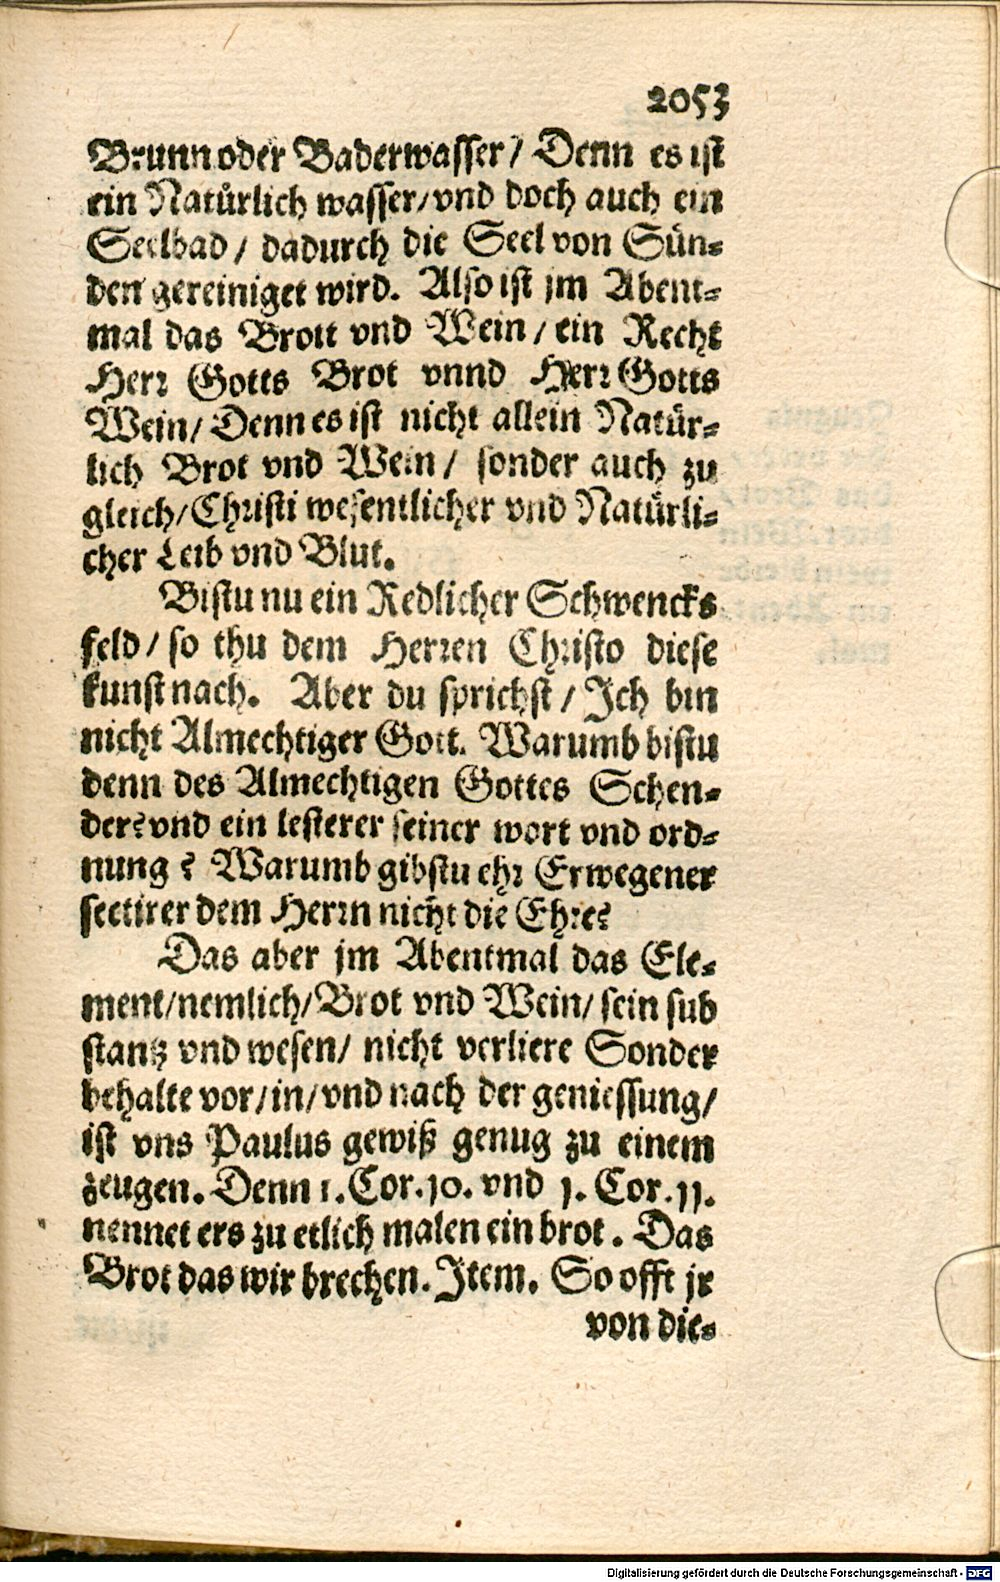 2053
Brunn oder Baderwasser / Denn es ist
ein Natürlich wasser / vnd doch auch ein
Seelbad / dadurch die Seel von Sün-
den gereiniget wird. Also ist jm Abent-
mal das Brott vnd Wein / ein Recht
Herr Gotts Brot vnnd Herr Gotts
Wein / Denn es ist nicht allein Natür-
lich Brot vnd Wein / sonder auch zu
gleich / Christi wesentlicher vnd Natürli-
cher Leib vnd Blut.
Bistu nu ein Redlicher Schwencks
feld / so thu dem Herren Christo diese
kunst nach. Aber du sprichst / Ich bin
nicht Almechtiger Gott. Warumb bistu
denn des Almechtigen Gottes Schen-
der? vnd ein lesterer seiner wort vnd ord-
nung? Warumb gibstu ehr Erwegener
sectirer dem Herrn nicht die Ehre?
Das aber jm Abentmal das Ele-
ment / nemlich / Brot vnd Wein / sein sub
stantz vnd wesen / nicht verliere Sonder
behalte vor / in / vnd nach der geniessung /
ist vns Paulus gewiß genug zu einem
zeugen. Denn 1. Cor. 10. vnd 1. Cor. 11.
nennet ers zu etlich malen ein brot. Das
Brot das wir brechen. Item. So offt jr
von die-
Digitalisierung gefördert durch die Deutsche Forschungsgemeinschaft - DFG